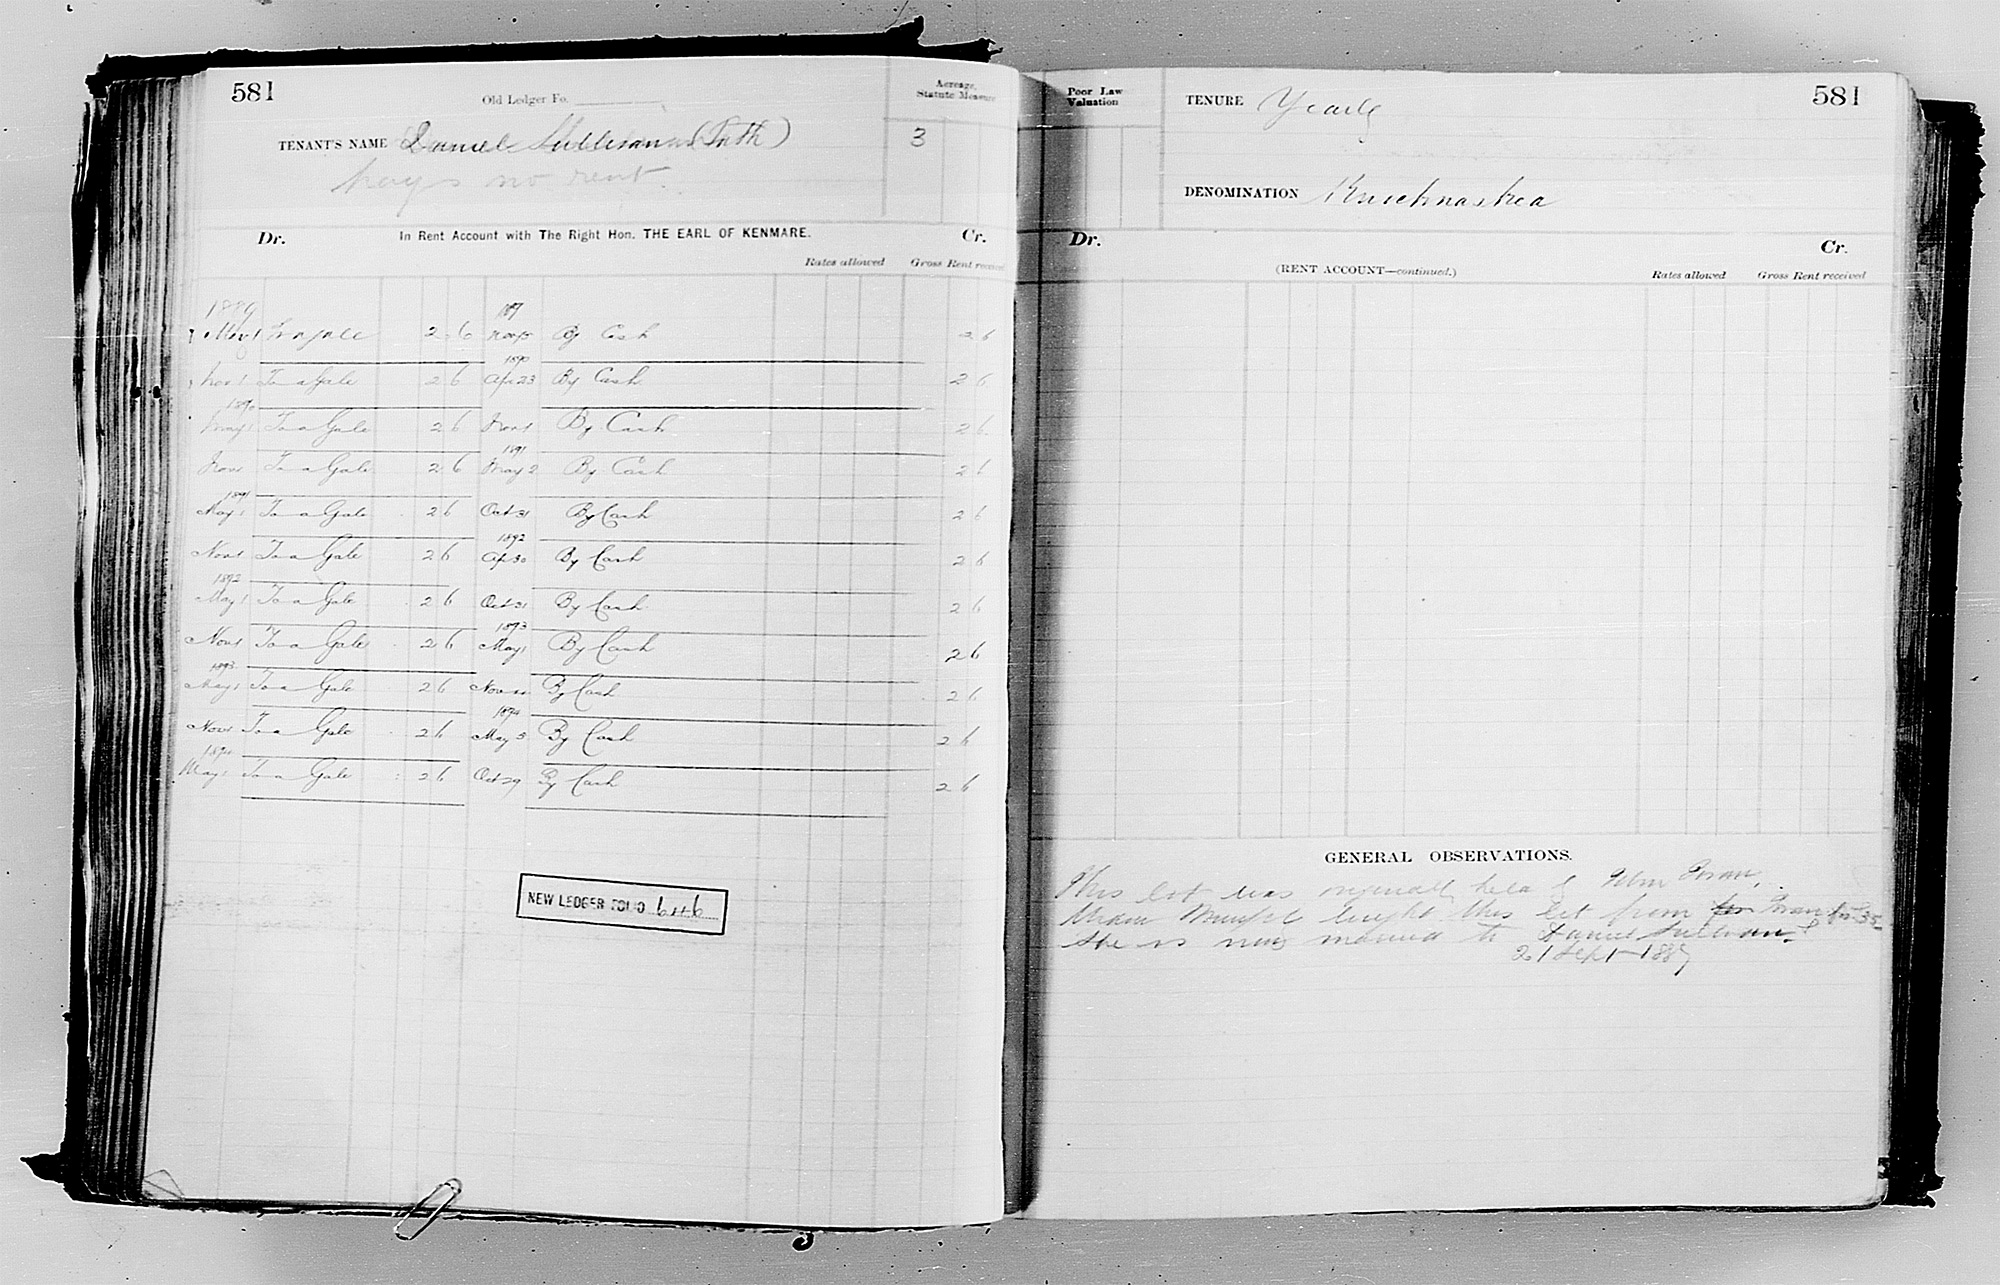 581
Old Ledger Fo.
Acreage, Statute Measure
TENANT'S NAME Daniel Sullivan
3
pays no rent
Dr. In Rent Account with The Right Hon. THE EARL OF KENMARE. Cr.
Rates allowed Gross Rent received
1889
May 1 To a Gale 2 6 By Cash 2 6
1890
Nov 1 To a Gale 2 6 Apr 23 By Cash 2 6
1890
May 1 To a Gale 2 6 Nov 1 By Cash 2 6
1891
Nov 1 To a Gale 2 6 May 2 By Cash 2 6
1891
May 1 To a Gale 2 6 Oct 31 By Cash 2 6
1892
Nov 1 To a Gale 2 6 Ap 30 By Cash 2 6
1892
May 1 To a Gale 2 6 Oct 31 By Cash 2 6
1893
Nov 1 To a Gale 2 6 May 1 By Cash 2 6
1893
May 1 To a Gale 2 6 Nov By Cash 2 6
1894
Nov 1 To a Gale 2 6 May 5 By Cash 2 6
1894
May 1 To a Gale 2 6 Oct 29 By Cash 2 6
NEW LEDGER FOLIO 646
Poor Law Valuation
TENURE Yearly
581
DENOMINATION
Dr. Cr.
(RENT ACCOUNT—continued.)
Rates allowed Gross Rent received
GENERAL OBSERVATIONS.
This lot was originally held by
bought this lot from
She is now married to Daniel Sullivan
21 Sept 1887